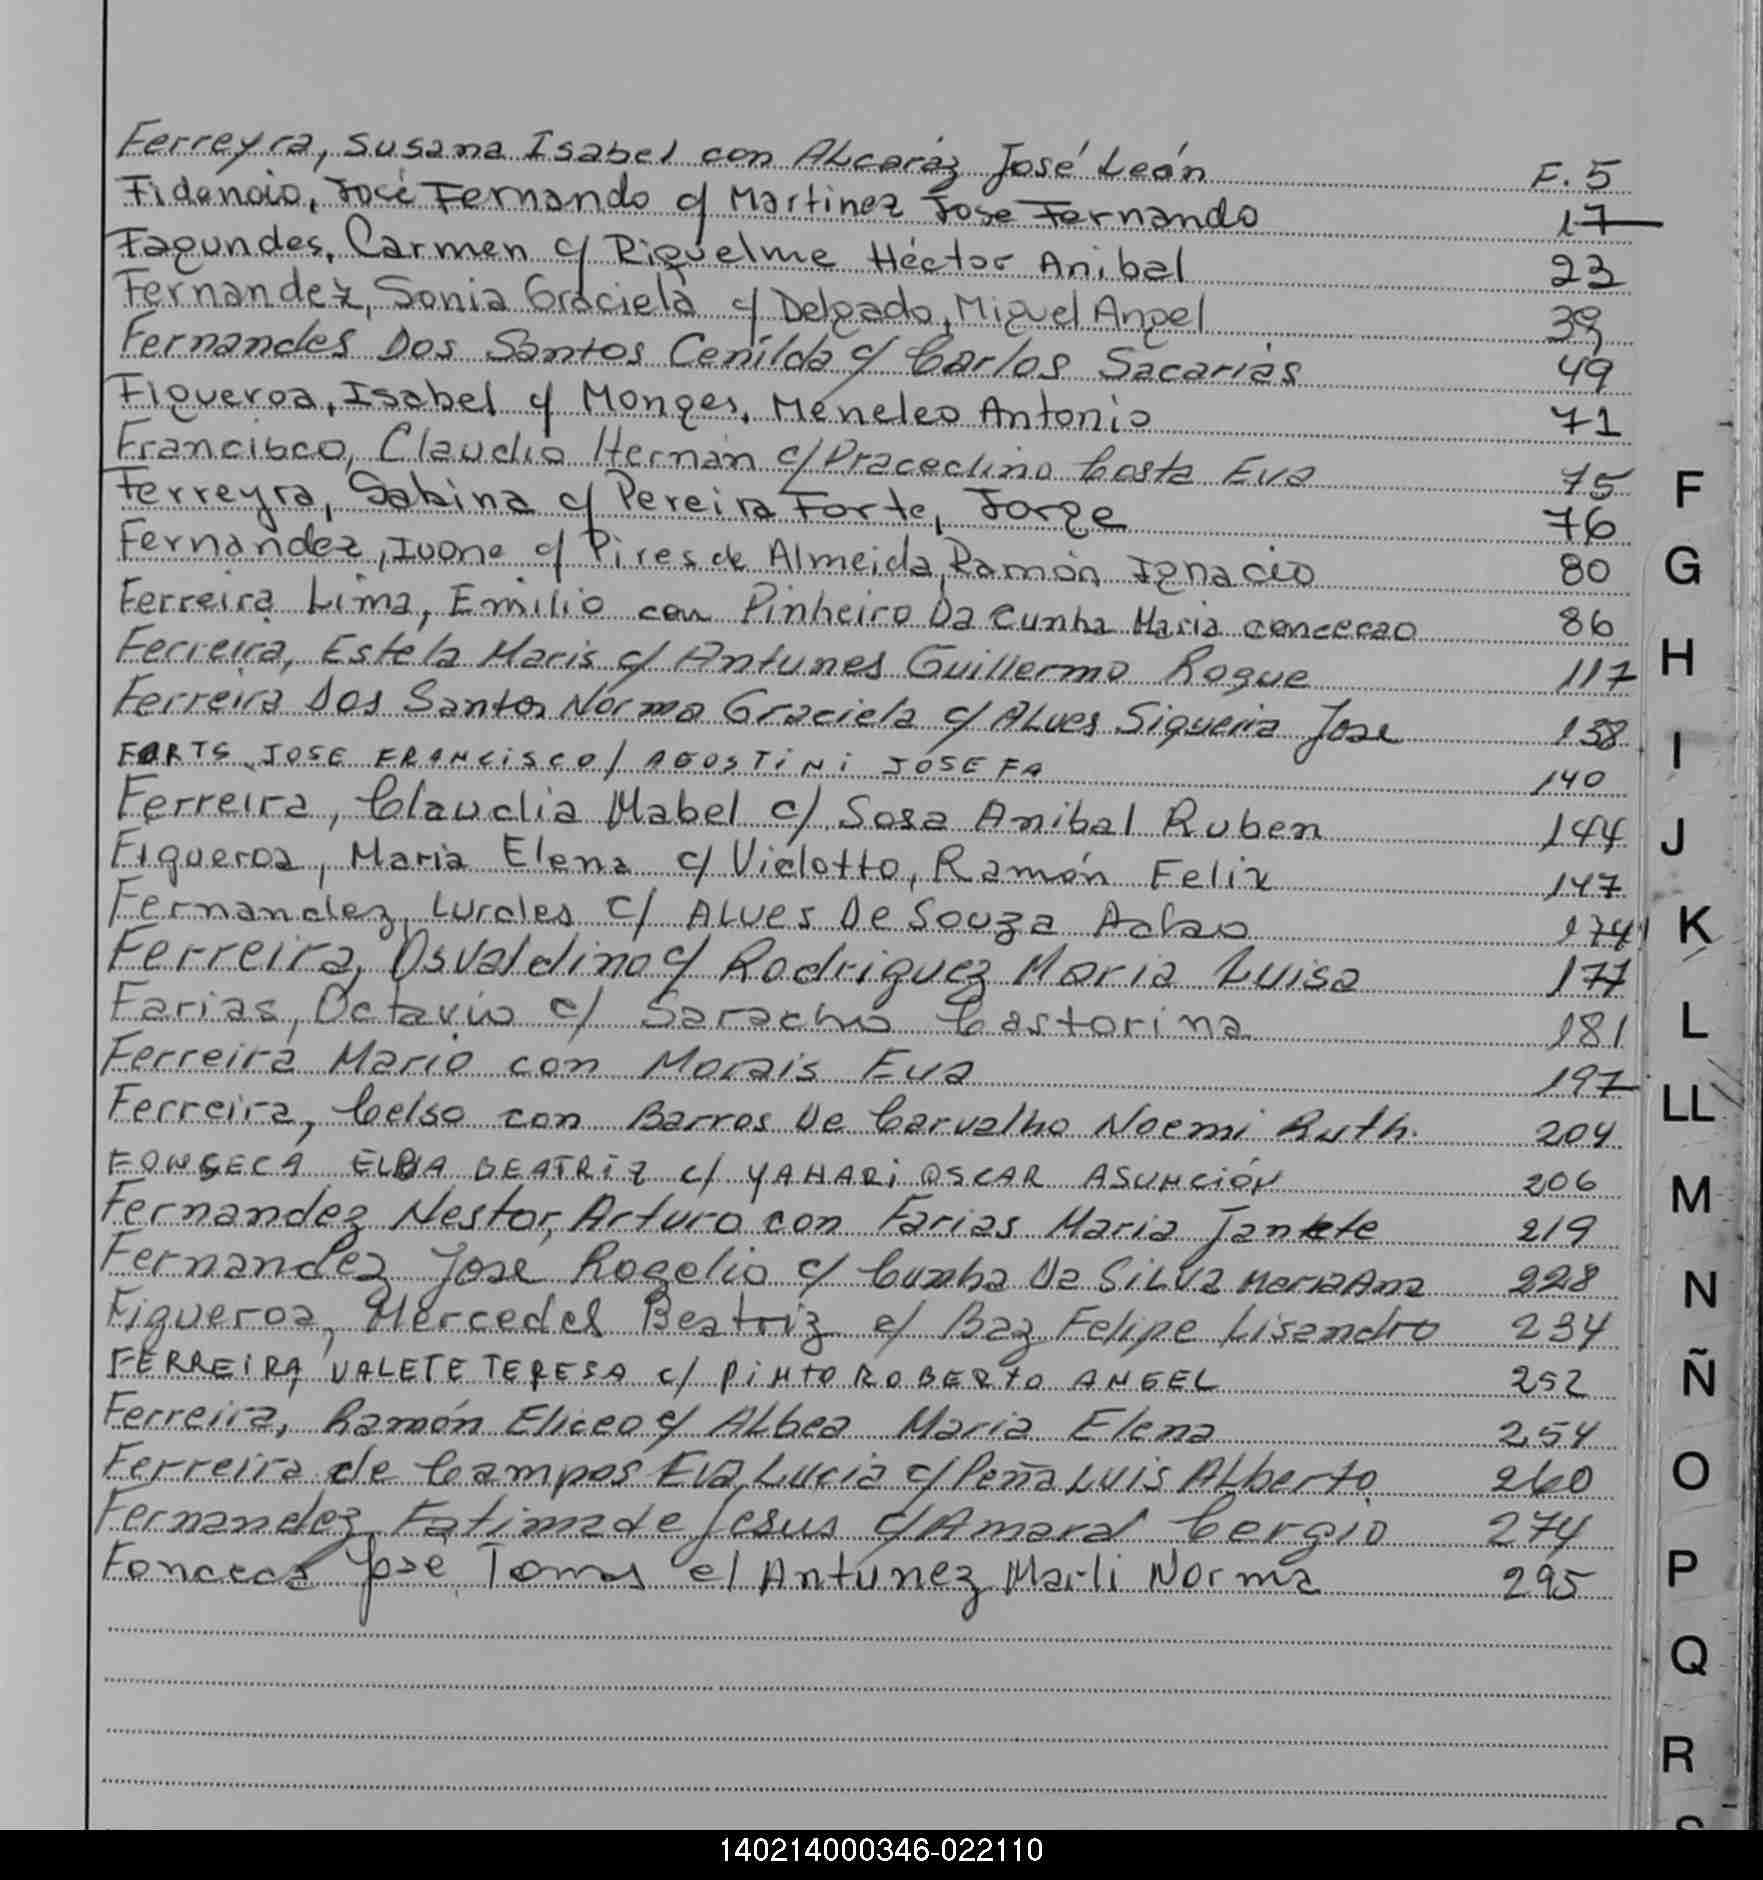 Ferreyra, Susana Isabel con Alcaráz José León F. 5
Fidencio, José Fernando c/ Martinez Jose Fernando 17
Fagundes, Carmen c/ Riquelme Héctor Anibal 23
Fernandez, Sonia Graciela c/ Delgado, Miguel Angel 39
Fernandes Dos Santos Cenilda c/ Carlos Sacarias 49
Figueroa, Isabel c/ Monges, Meneleo Antonio 71
Francisco, Claudio Hernán c/ Pracedino Costa Eva 75
Ferreyra, Sabina c/ Pereira Forte, Jorge 76
Fernández, Ivone c/ Pires de Almeida, Ramón Ignacio 80
Ferreira Lima, Emilio con Pinheiro Da Cunha Maria concecao 86
Ferreira, Estela Maris c/ Antunes Guillermo Roque 117
Ferreira Dos Santos Norma Graciela c/ Alves Siqueria Jose 138
FORTS, JOSE FRANCISCO / AGOSTINI JOSEFA 140
Ferreira, Claudia Mabel c/ Sosa Anibal Ruben 144
Figueroa, Maria Elena c/ Vielotto, Ramón Felix 147
Fernandez, Lurdes c/ ALVES De Souza Adao 174
Ferreira, Osvaldino c/ Rodriguez Maria Luisa 177
Farias, Octavio c/ Saracho Castorina 181
Ferreira Mario con Morais Eva 197
Ferreira, Celso con Barros De Carvalho Noemi Ruth. 204
FONSECA ELBA BEATRIZ c/ YAHARI OSCAR ASUNCIÓN 206
Fernandez Nestor, Arturo con Farias Maria Janete 219
Fernandez Jose Rogelio c/ Cunha Da SILVA Maria Ana 228
Figueroa, Mercedes Beatriz c/ Baz Felipe Lisandro 234
FERREIRA, VALETE TERESA c/ PINTO ROBERTO ANGEL 252
Ferreira, Ramón Eliceo c/ Albea Maria Elena 254
Ferreira de Campos Eva Lucia c/ Peña Luis Alberto 260
Fernandez Fatima de Jesus c/ Amaral Cergio 274
Fonceca José Tomas c/ Antunez Marli Norma 295
F
G
H
I
J
K
L
LL
M
N
Ñ
O
P
Q
R
140214000346-022110